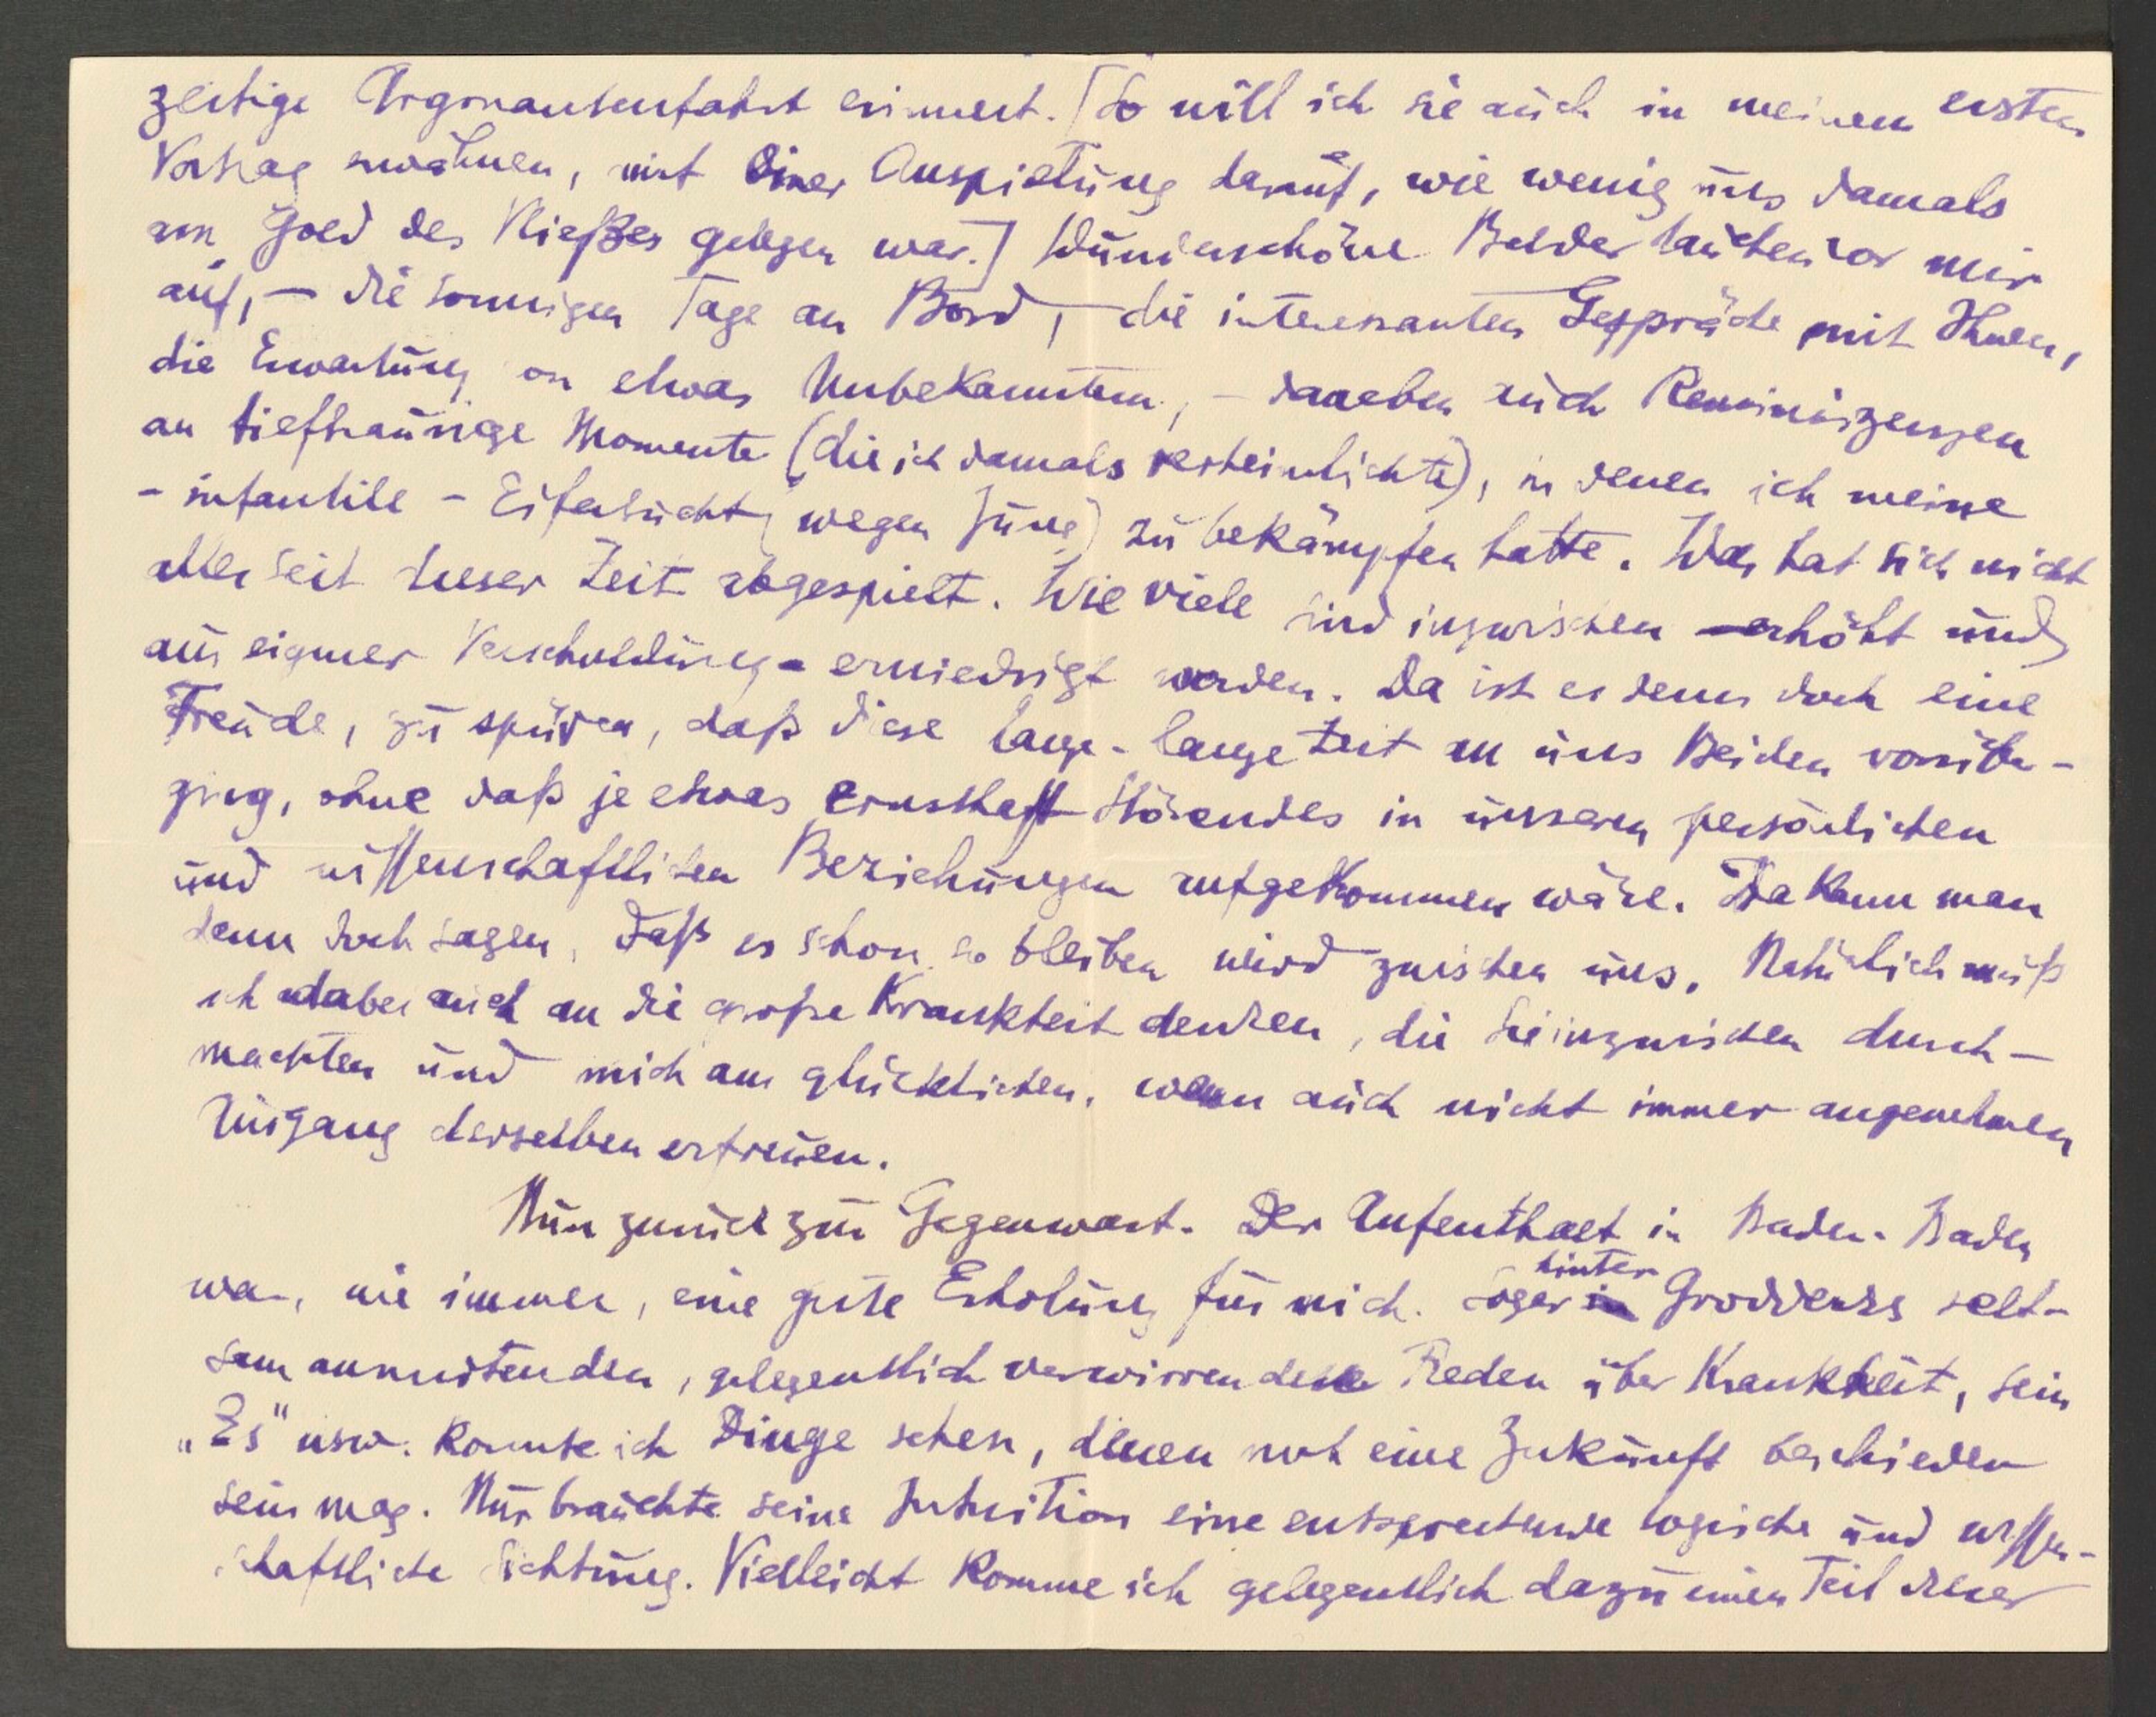 zeitige Argonautenfahrt erinnert. [So will ich sie auch in meinem ersten
Vortrag erwähnen, mit einer Anspielung darauf, wie wenig uns damals
am Gold des Vließes gelegen war.] Wunderschöne Bilder tauchen vor mir
auf, – die sonnigen Tage an Bord, – die interessanten Gespräche mit Ihnen,
die Erwartung von etwas Unbekanntem, – daneben auch Reminiszenzen
an tieftraurige Momente (die ich damals verheimlichte), in denen ich meine
- infantile - Eifersucht (wegen Jung) zu bekämpfen hatte. Was hat sich nicht
alles seit dieser Zeit abgespielt. Wie viele sind inzwischen erhöht und
aus eigener Verschuldung - erniedrigt worden. Da ist es denn doch eine
Freude, zu spüren, daß diese lange - lange Zeit an uns Beiden vorüber-
ging, ohne daß je etwas ernsthaft Störendes in unseren persönlichen
und wissenschaftlichen Beziehungen aufgekommen wäre. Da kann man
denn doch sagen, daß es schon so bleiben wird zwischen uns. Natürlich muß
ich dabei auch an die große Krankheit denken, die Sie inzwischen durch-
machten und mich am glücklichen, wenn auch nicht immer angenehmen
Ausgang derselben erfreuen.
Nun zurück zur Gegenwart. Der Aufenthalt in Baden-Baden
war, wie immer, eine gute Erholung für mich. Sogar hinter Groddecks selt-
sam anmutenden, gelegentlich verwirrenden Reden über Krankheit, sein
„Es" usw. konnte ich Dinge sehen, denen noch eine Zukunft beschieden
sein mag. Nur brauchte seine Intuition eine entsprechende logische und wissen-
schaftliche Sichtung. Vielleicht komme ich gelegentlich dazu einen Teil dieser